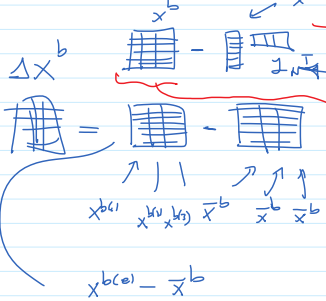 x^b
ΔX^b − 1_N^T
= −
x^{b(1)} x^{b(2)} x^{b(3)} x̄^b x̄^b x̄^b
x^{b(e)} − x̄^b